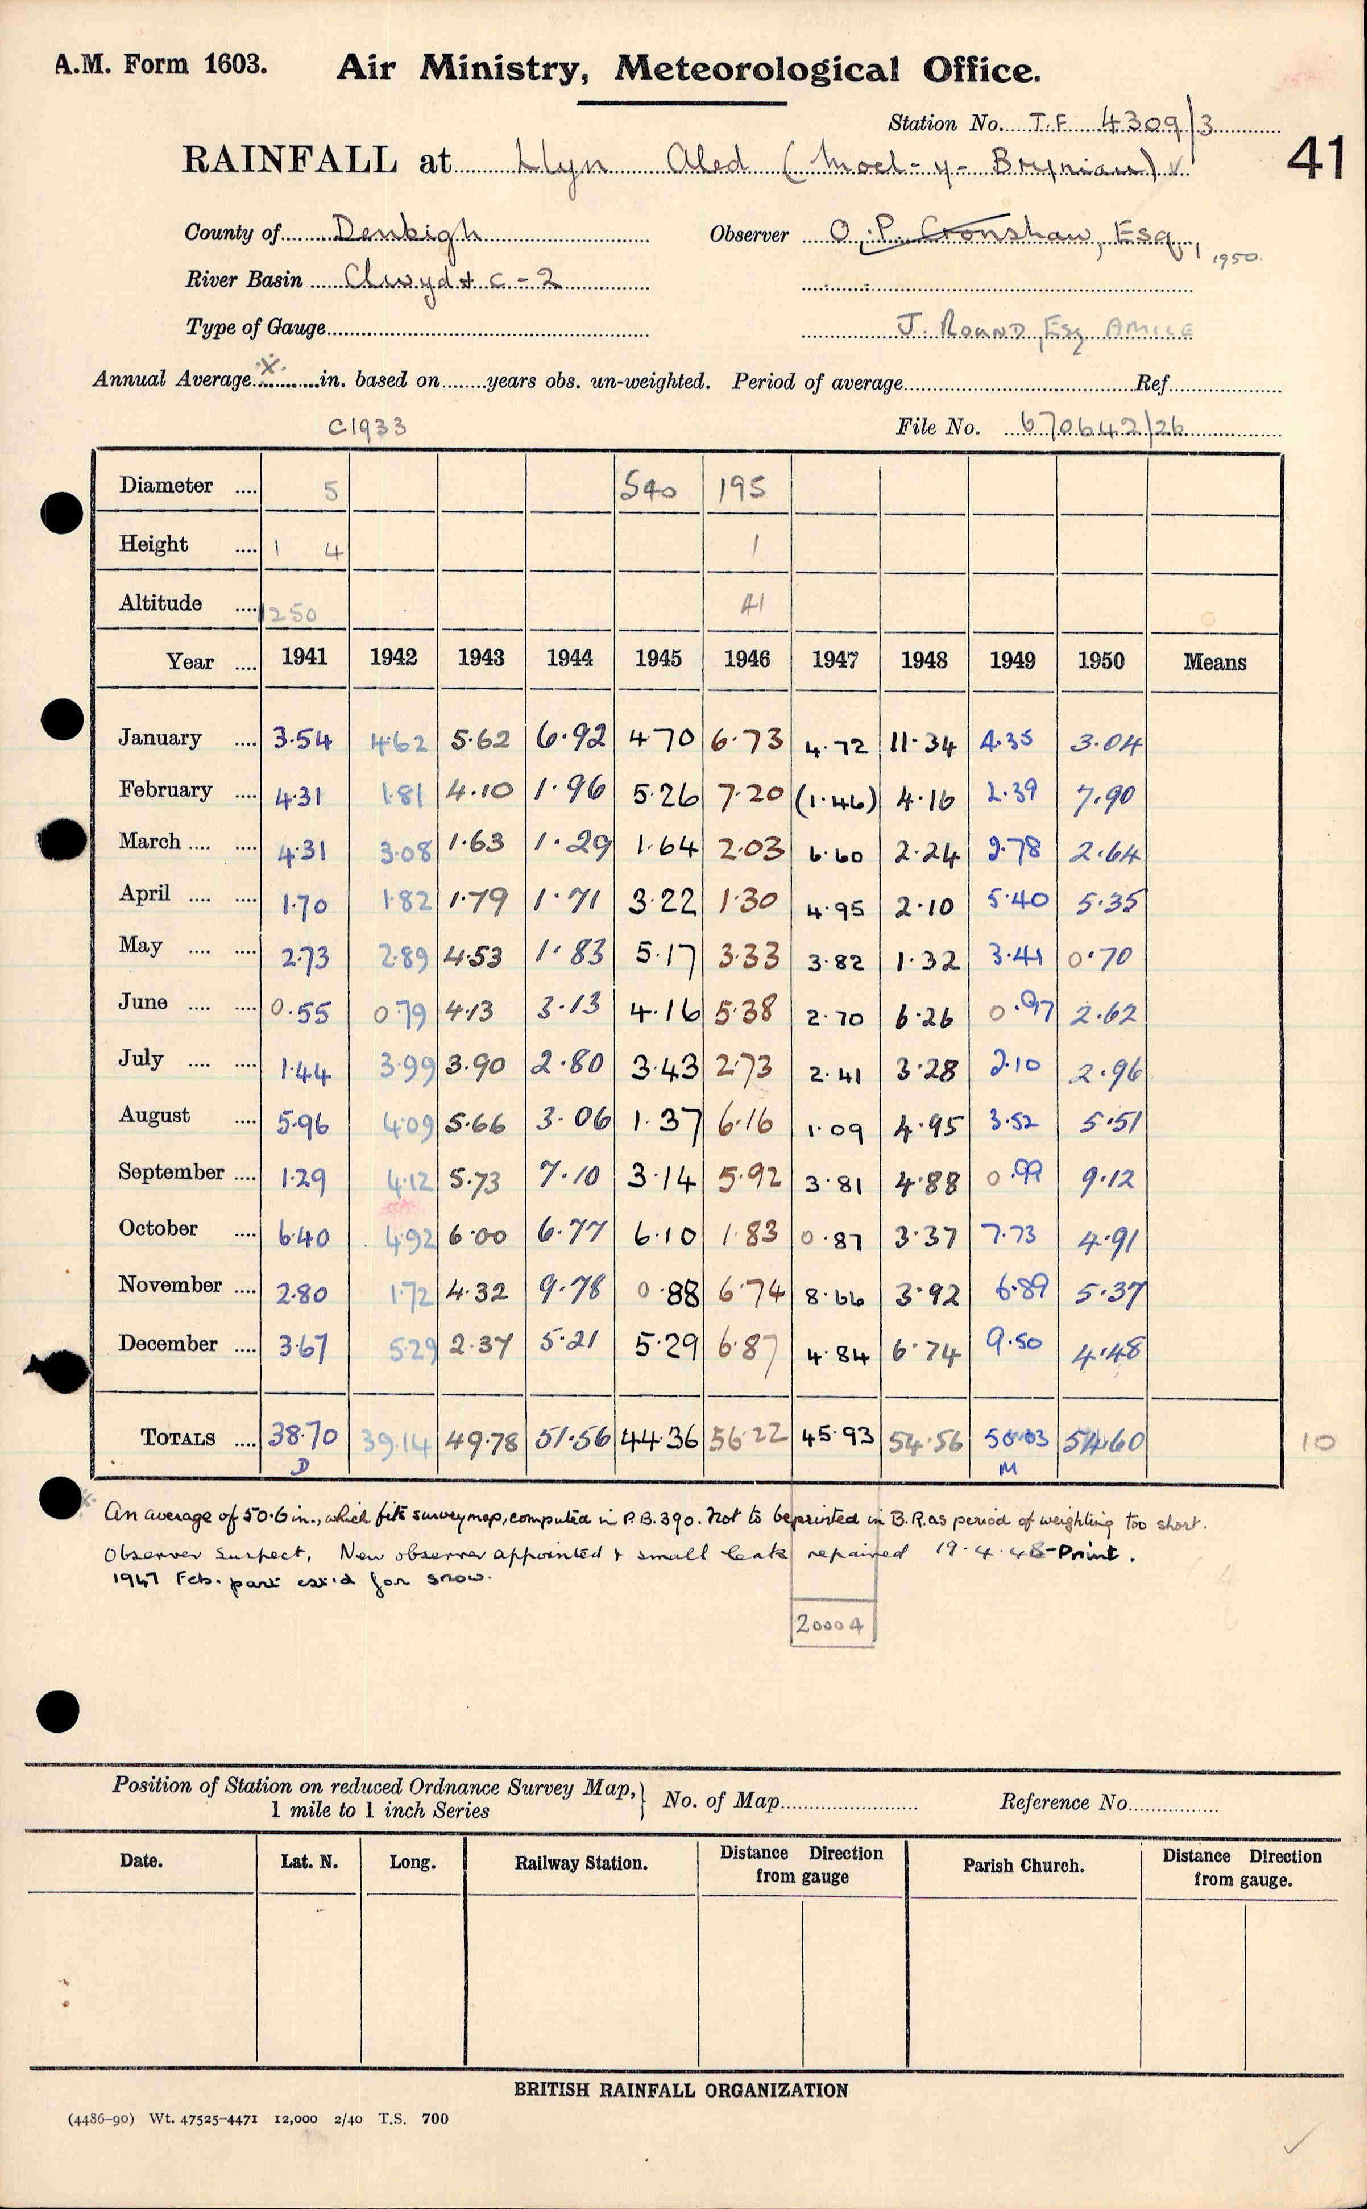 A.M. Form 1603. Air Ministry, Meteorological Office.
Station No. T.F 4309/3
RAINFALL at Llyn Aled (Moel-y-Bryniau) ✓ 41
County of Denbigh Observer O.P. Cronshaw, Esq., 1950.
River Basin Clwyd & c - 2
Type of Gauge J. Round, Esq AMICE
Annual Average x in. based on years obs. un-weighted. Period of average Ref
C1933 File No. 670642/26
Diameter .... 5 540 195
Height .... 1 4 1
Altitude .... 1250 A1
Year .... 1941 1942 1943 1944 1945 1946 1947 1948 1949 1950 Means
January .... 3.54 4.62 5.62 6.92 4.70 6.73 4.72 11.34 4.35 3.04
February .... 4.31 1.81 4.10 1.96 5.26 7.20 (1.46) 4.16 2.39 7.90
March .... .... 4.31 3.08 1.63 1.29 1.64 2.03 6.60 2.24 2.78 2.64
April .... .... 1.70 1.82 1.79 1.71 3.22 1.30 4.95 2.10 5.40 5.35
May .... .... 2.73 2.89 4.53 1.83 5.17 3.33 3.82 1.32 3.41 0.70
June .... .... 0.55 0.79 4.13 3.13 4.16 5.38 2.70 6.26 0.97 2.62
July .... .... 1.44 3.99 3.90 2.80 3.43 2.73 2.41 3.28 2.10 2.96
August .... 5.96 4.09 5.66 3.06 1.37 6.16 1.09 4.95 3.52 5.51
September .... 1.29 4.12 5.73 7.10 3.14 5.92 3.81 4.88 0.99 9.12
October .... 6.40 4.92 6.00 6.77 6.10 1.83 0.87 3.37 7.73 4.91
November .... 2.80 1.72 4.32 9.78 0.88 6.74 8.66 3.92 6.89 5.37
December .... 3.67 5.29 2.37 5.21 5.29 6.87 4.84 6.74 9.50 4.48
TOTALS .... 38.70 39.14 49.78 51.56 44.36 56.22 45.93 54.56 50.03 54.60 10
D M
x. An average of 50.6 in., which fits survey map, computed in P.B.390. Not to be printed in B.R. as period of weighting too short.
Observer suspect. New observer appointed & small leak repaired 19.4.48 - Print.
1947 Feb. part est'd for snow.
2000A
Position of Station on reduced Ordnance Survey Map, } No. of Map Reference No.
1 mile to 1 inch Series
Date. Lat. N. Long. Railway Station. Distance Direction from gauge Parish Church. Distance Direction from gauge.
BRITISH RAINFALL ORGANIZATION
(4486-90) Wt. 47525-4471 12,000 2/40 T.S. 700